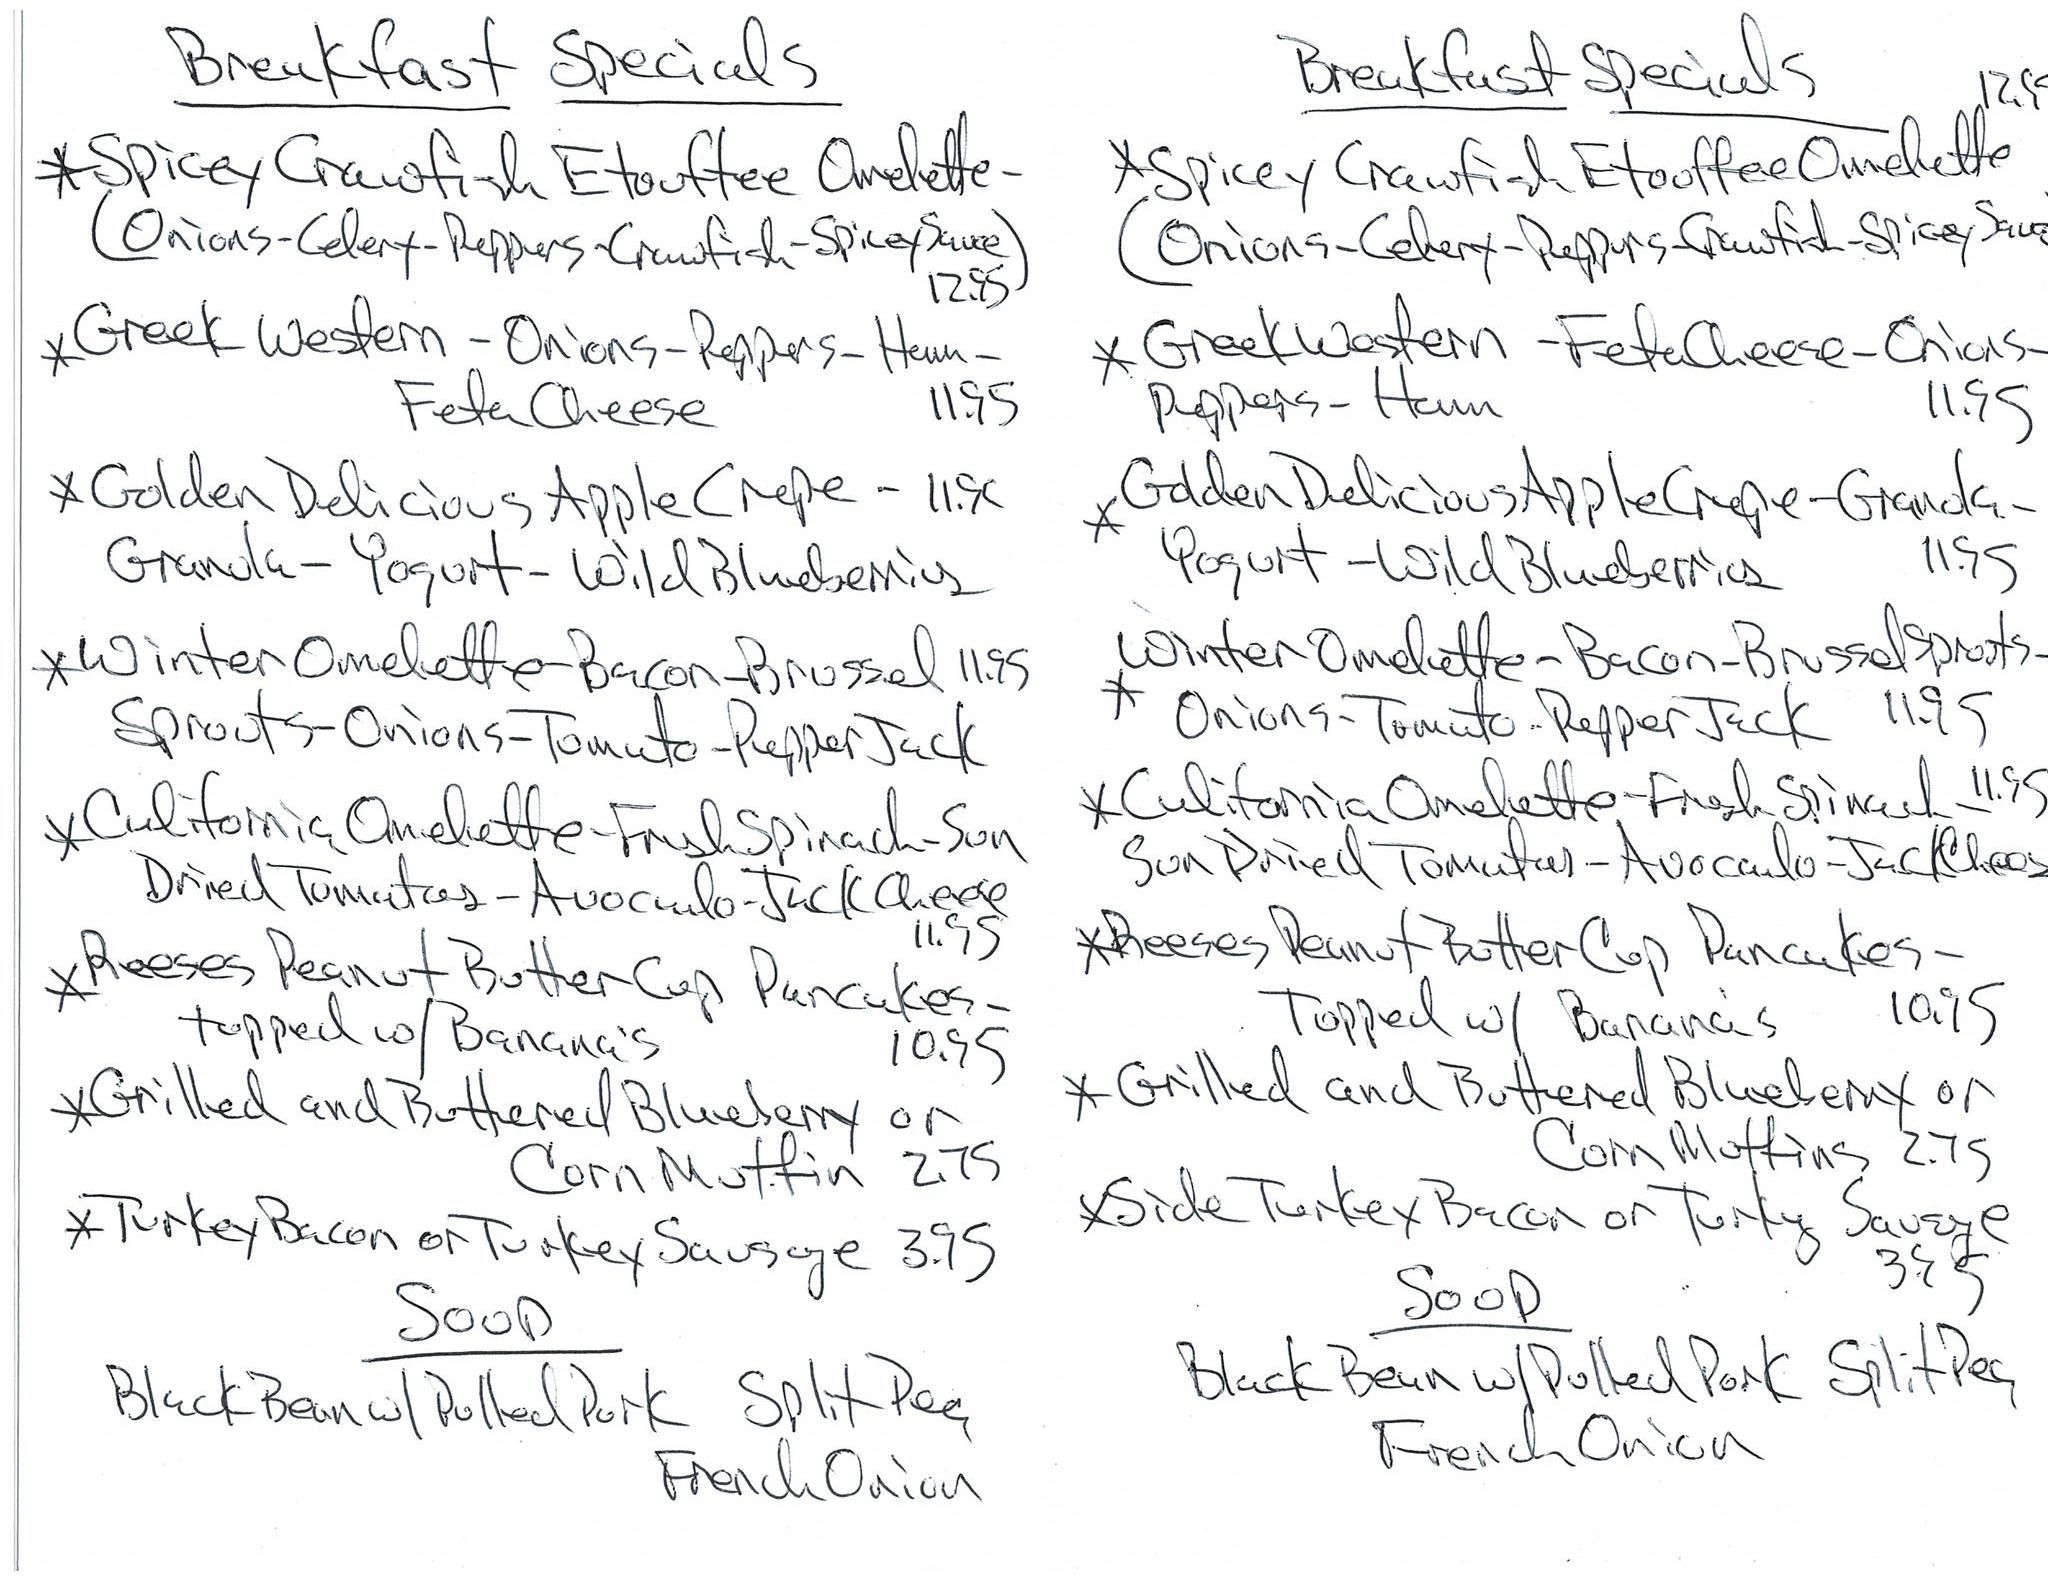 Breakfast Specials
*Spicey Crawfish Etouffee Omelette-
(Onions-Celery-Peppers-Crawfish-Spicey Sauce)
12.95
*Greek Western - Onions-Peppers-Ham-
Feta Cheese 11.95
*Golden Delicious Apple Crepe - 11.95
Granola - Yogurt - Wild Blueberries
*Winter Omelette-Bacon-Brussel 11.95
Sprouts-Onions-Tomato-Pepper Jack
*California Omelette-Fresh Spinach-Sun
Dried Tomatoes-Avocado-Jack Cheese
11.95
*Reeses Peanut Butter Cup Pancakes-
topped w/ Banana's 10.95
*Grilled and Buttered Blueberry or
Corn Muffin 2.75
*Turkey Bacon or Turkey Sausage 3.95
Soup
Black Bean w/ Pulled Pork Split Pea
French Onion
Breakfast Specials
12.95
*Spicey Crawfish Etouffee Omelette
(Onions-Celery-Peppers-Crawfish-Spicey Sauce
*Greek Western - Feta Cheese - Onions-
Peppers- Ham 11.95
*Golden Delicious Apple Crepe - Granola-
Yogurt - Wild Blueberries 11.95
*Winter Omelette - Bacon-Brussel Sprouts-
Onions-Tomato-Pepper Jack 11.95
*California Omelette-Fresh Spinach - 11.95
Sun Dried Tomatoes-Avocado-Jack Cheese
*Reeses Peanut Butter Cup Pancakes-
Topped w/ Banana's 10.95
*Grilled and Buttered Blueberry or
Corn Muffins 2.75
*Side Turkey Bacon or Turky Sausage
3.95
Soup
Black Bean w/ Pulled Pork Split Pea
French Onion